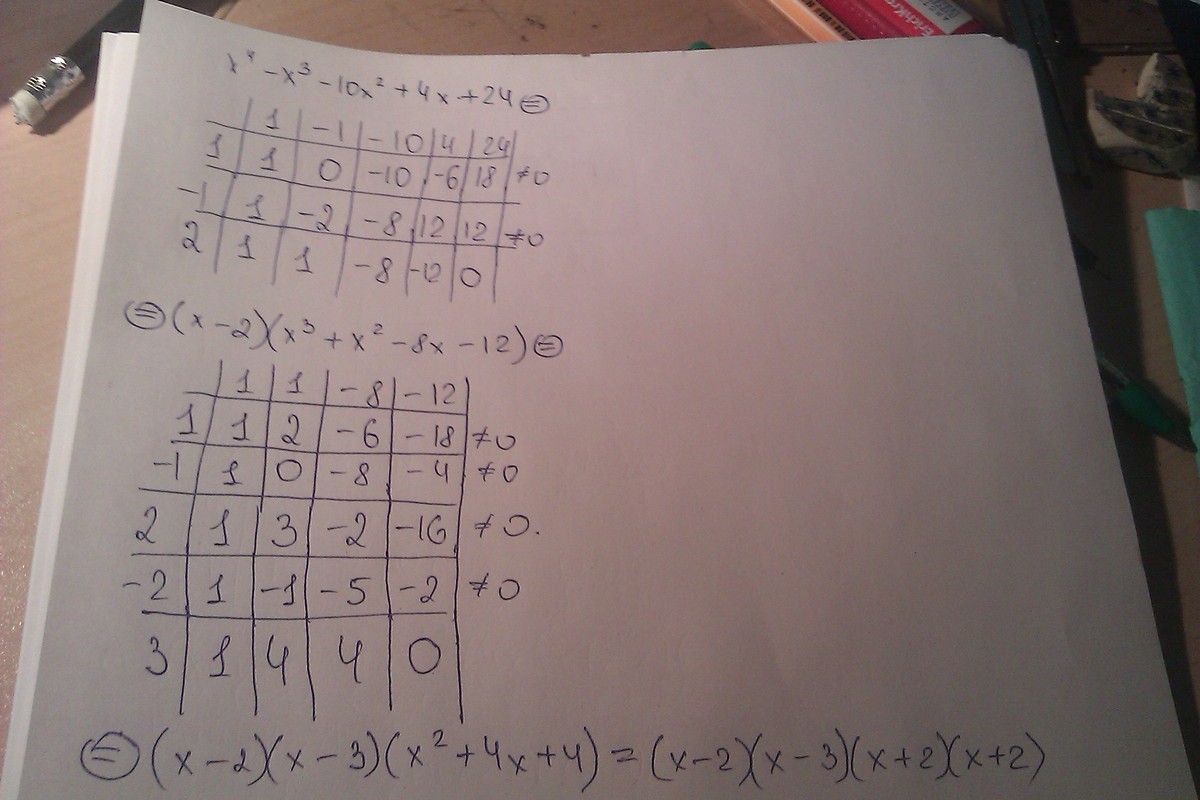 x⁴ - x³ - 10x² + 4x + 24 ⊜
1 | -1 | -10 | 4 | 24
1 | 1 | 0 | -10 | -6 | 18 | ≠0
-1 | 1 | -2 | -8 | 12 | 12 | ≠0
2 | 1 | 1 | -8 | -12 | 0
⊜ (x-2)(x³ + x² - 8x - 12) ⊜
1 | 1 | -8 | -12
1 | 1 | 2 | -6 | -18 | ≠0
-1 | 1 | 0 | -8 | -4 | ≠0
2 | 1 | 3 | -2 | -16 | ≠0.
-2 | 1 | -1 | -5 | -2 | ≠0
3 | 1 | 4 | 4 | 0
⊜ (x-2)(x-3)(x² + 4x + 4) = (x-2)(x-3)(x+2)(x+2)